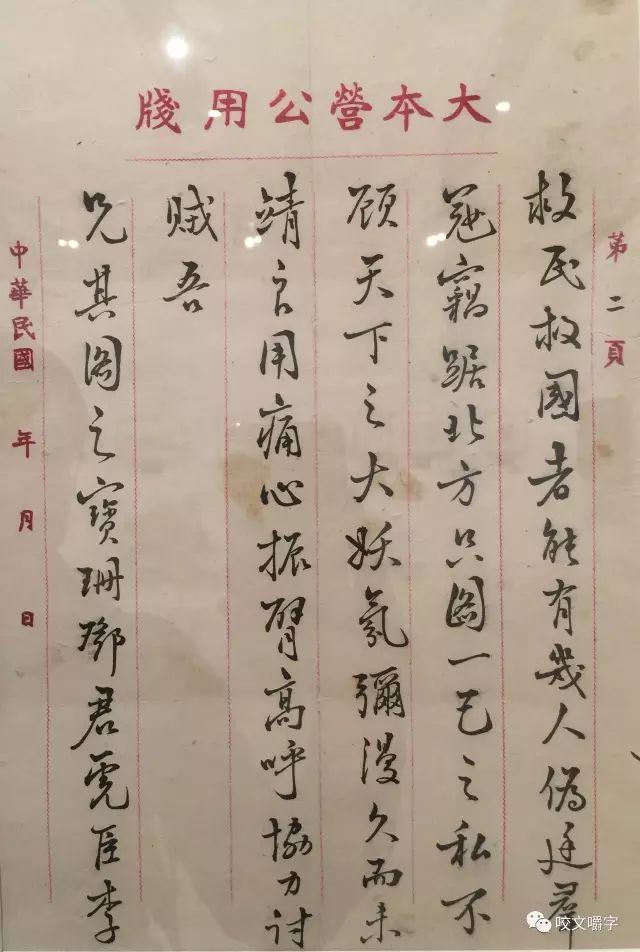 大本營公用牋
第二頁
救民救國者能有幾人偽廷君
冠竊踞北方只圖一己之私不
顧天下之大妖氛彌漫久而未
靖言用痛心振臂高呼協力討
賊吾
兄其圖之寶珊鄧君虎臣李
中華民國 年 月 日
咬文嚼字